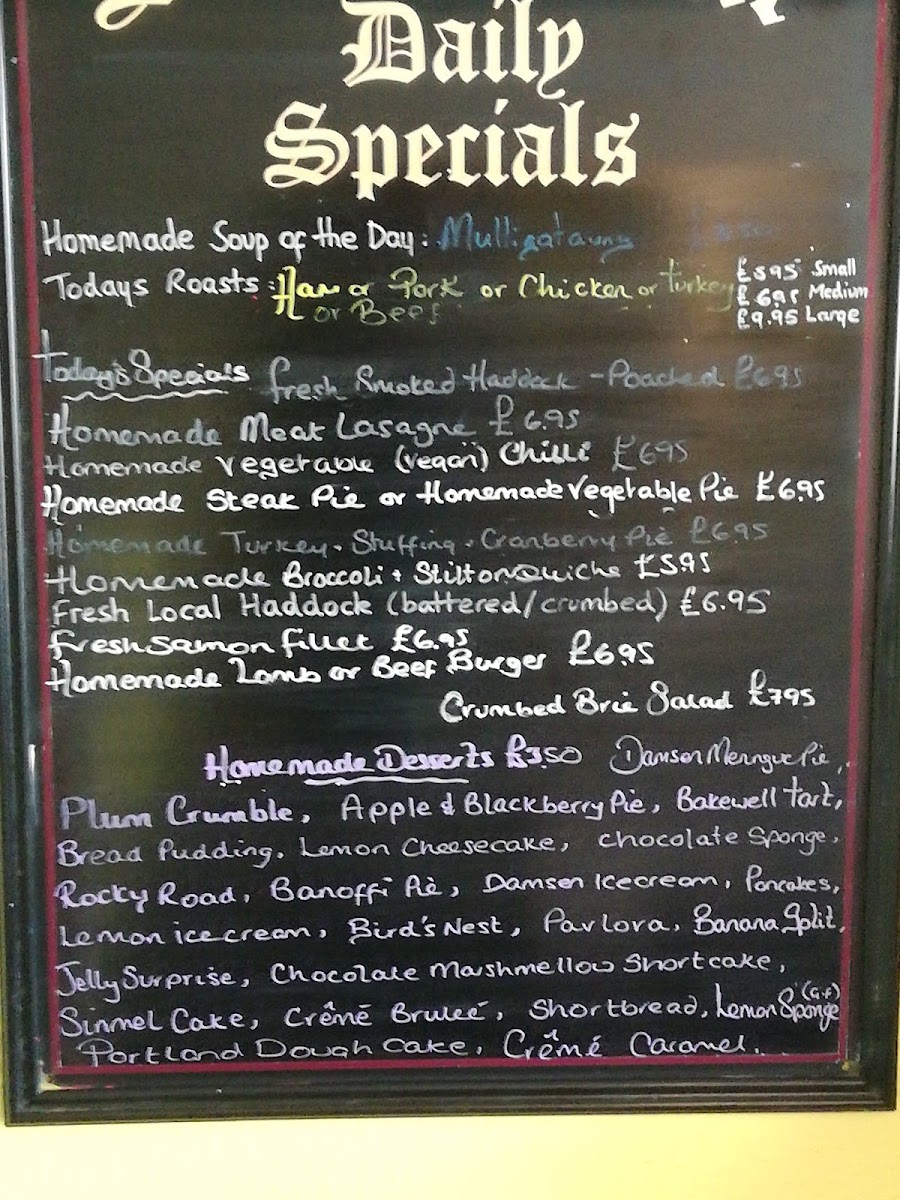 Daily
Specials
Homemade Soup of the Day: Mulligatauny £3.50
Todays Roasts: Ham or Pork or Chicken or Turkey £5.95 Small
or Beef £6.95 Medium
£9.95 Large
Today's Specials fresh Smoked Haddock - Poached £6.95
Homemade Meat Lasagne £6.95
Homemade Vegetable (vegan) Chilli £6.95
Homemade Steak Pie or Homemade Vegetable Pie £6.95
Homemade Turkey. Stuffing. Cranberry Pie £6.95
Homemade Broccoli & Stilton Quiche £5.95
Fresh Local Haddock (battered/crumbed) £6.95
fresh samon fillet £6.95
Homemade Lamb or Beef Burger £6.95
Crumbed Brie Salad £7.95
Homemade Desserts £3.50 Damson Meringue Pie,
Plum Crumble, Apple & Blackberry Pie, Bakewell tart,
Bread Pudding, Lemon Cheesecake, chocolate Sponge,
Rocky Road, Banoffi Piè, Damson Icecream, Pancakes,
Lemon ice cream, Bird's Nest, Pavlova, Banana Split,
Jelly Surprise, Chocolate Marshmellow Shortcake,
Simnel Cake, Crêmé Bruleé, Shortbread, Lemon Sponge (G.f)
Portland Dough Cake, Crêmé Caramel.